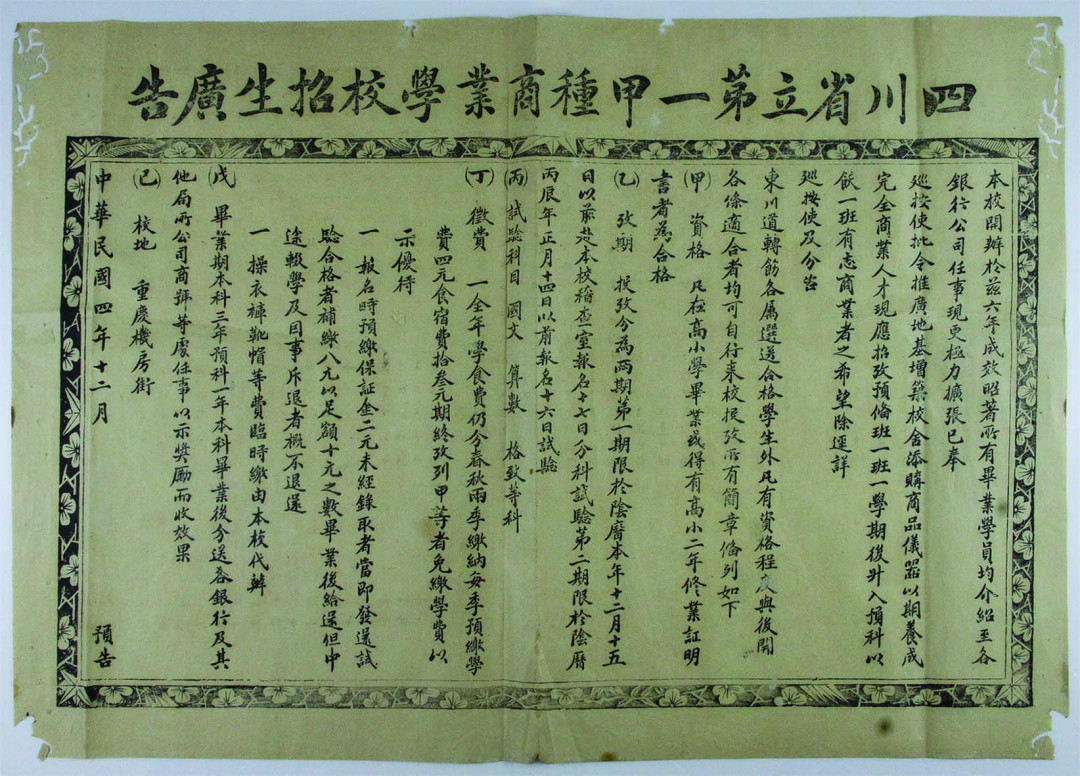 四川省立第一甲種商業學校招生廣告
本校開辦於茲六年成效昭著所有畢業學員均介紹至各
銀行公司任事現更極力擴張已奉
巡按使批令推廣地基增築校舍添購商品儀器以期養成
完全商業人才現應招攷預備班一班一學期後升入預科以
飫一班有志商業者之希望除逕詳
巡按使及分咨
東川道轉飭各属選送合格學生外凡有資格程度與後開
各條適合者均可自行來校投攷所有簡章備列如下
(甲) 資格 凡在高小學畢業或得有高小二年修業証明
書者為合格
(乙) 攷期 投攷分為兩期第一期限於陰曆本年十二月十五
日以前赴本校稽查室報名十七日分科試驗第二期限於陰曆
丙辰年正月十四日以前報名十六日試驗
(丙) 試驗科目 國文 算數 格致等科
(丁) 徵費 一全年學食費仍分春秋兩季繳納每季預繳學
費四元食宿費拾叁元期終攷列甲等者免繳學費以
示優待
一 報名時預繳保証金二元未經錄取者當即發還試
驗合格者補繳八元以足額十元之數畢業後給還但中
途輟學及因事斥退者概不退還
一 操衣褲靴帽等費臨時繳由本校代辦
(戊) 畢業期本科三年預科一年本科畢業後分送各銀行及其
他局所公司商號等處任事以示奬勵而收效果
(己) 校地 重慶機房街
中華民國四年十二月 預告